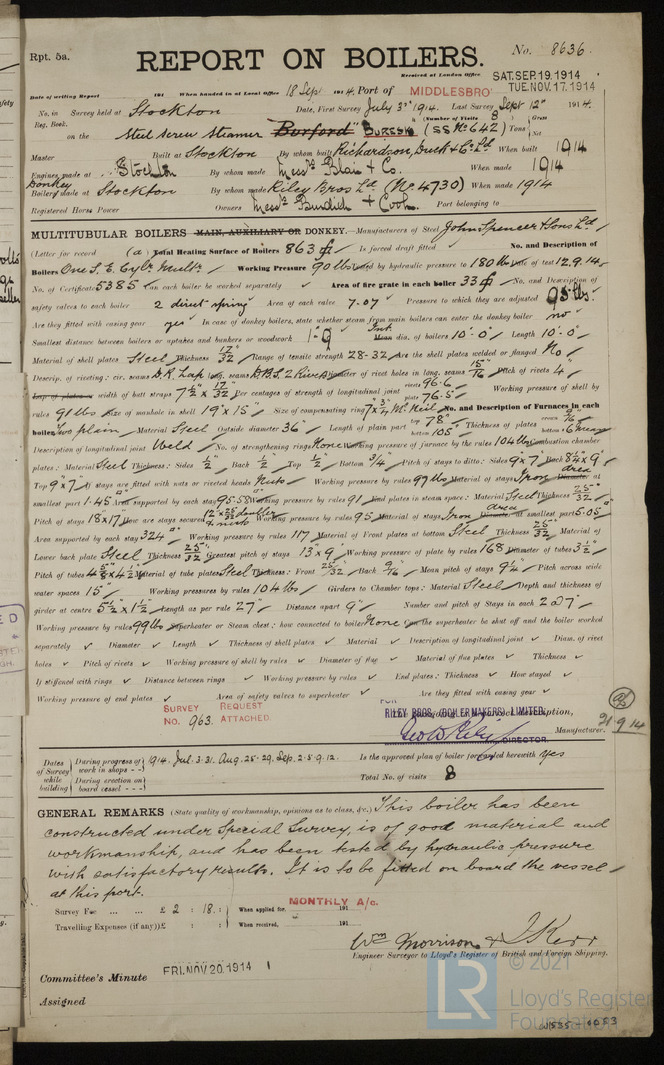 Rpt. 5a.
REPORT ON BOILERS.
No. 8636.
Received at London Office SAT. SEP. 19. 1914
TUE. NOV. 17. 1914
Date of writing Report 191 When handed in at Local Office 18 Sep 1914. Port of MIDDLESBRO'
No. in Survey held at Stockton Date, First Survey July 3rd 1914. Last Survey Sept 12th 1914.
Reg. Book. (Number of Visits 8) Gross
on the Steel Screw Steamer "Burford" BURESK (SS No 642) Tons Net
Master Built at Stockton By whom built Richardson, Duck & Co. Ld When built 1914
Engines made at Stockton By whom made Messrs Blair & Co. When made 1914
Donkey
Boilers made at Stockton By whom made Riley Bros Ld (No. 4730) When made 1914
Registered Horse Power Owners Messrs Burdick & Cook Port belonging to
MULTITUBULAR BOILERS MAIN, AUXILIARY OR DONKEY.—Manufacturers of Steel John Spencer & Sons Ld
(Letter for record (a) Total Heating Surface of Boilers 863 Is forced draft fitted No. and Description of
Boilers One S. E. Cyl. Mult. Working Pressure 90 lbs Tested by hydraulic pressure to 180 lbs Date of test 12.9.14
No. of Certificate 5385 Can each boiler be worked separately Area of fire grate in each boiler 33 No. and Description of
safety valves to each boiler 2 direct spring Area of each valve 7.07 Pressure to which they are adjusted 95 lbs.
Are they fitted with easing gear yes In case of donkey boilers, state whether steam from main boilers can enter the donkey boiler no
Smallest distance between boilers or uptakes and bunkers or woodwork 1'-9" Int. Mean dia. of boilers 10'-0" Length 10'-0"
Material of shell plates Steel Thickness 17/32" Range of tensile strength 28-32 Are the shell plates welded or flanged No
Descrip. of riveting: cir. seams D.R. Lap long. seams D.B.S. 2 Rivets Diameter of rivet holes in long. seams 15/16 Pitch of rivets 4
Lap of plates or width of butt straps 7 1/2" x 17/32" Per centages of strength of longitudinal joint rivets 96.6 plate 76.5 Working pressure of shell by
rules 91 lbs Size of manhole in shell 19" x 15" Size of compensating ring 7" x 3/4" McNeil No. and Description of Furnaces in each
boiler Two plain Material Steel Outside diameter 36" Length of plain part top 78" bottom 105 Thickness of plates crown 9/16" bottom
Description of longitudinal joint Weld No. of strengthening rings None Working pressure of furnace by the rules 104 lbs Combustion chamber
plates: Material Steel Thickness: Sides 1/2" Back 1/2" Top 1/2" Bottom 3/4" Pitch of stays to ditto: Sides 9" x 7" Back 8 1/4" x 9"
Top 9" x 7" If stays are fitted with nuts or riveted heads Nuts Working pressure by rules 97 lbs Material of stays Iron area Diameter at
smallest part 1.45 Area supported by each stay 95.58 Working pressure by rules 91 End plates in steam space: Material Steel Thickness 25/32"
Pitch of stays 18 x 17 How are stays secured double nuts Working pressure by rules 95 Material of stays Iron area Diameter at smallest part 5.05
Area supported by each stay 324 Working pressure by rules 117 Material of Front plates at bottom Steel Thickness 25/32 Material of
Lower back plate Steel Thickness 25/32 Greatest pitch of stays 13" x 9" Working pressure of plate by rules 168 Diameter of tubes 3 1/2"
Pitch of tubes 4 5/8 x 4 1/2 Material of tube plates Steel Thickness: Front 25/32" Back 9/16 Mean pitch of stays 9 1/4" Pitch across wide
water spaces 15" Working pressures by rules 104 lbs Girders to Chamber tops: Material Steel Depth and thickness of
girder at centre 5 1/2" x 1 1/2 Length as per rule 27" Distance apart 9" Number and pitch of Stays in each 2 @ 7"
Working pressure by rules 99 lbs Superheater or Steam chest; how connected to boiler None Can the superheater be shut off and the boiler worked
separately Diameter Length Thickness of shell plates Material Description of longitudinal joint Diam. of rivet
holes Pitch of rivets Working pressure of shell by rules Diameter of flue Material of flue plates Thickness
If stiffened with rings Distance between rings Working pressure by rules End plates: Thickness How stayed
Working pressure of end plates Area of safety valves to superheater Are they fitted with easing gear
SURVEY REQUEST
No. 963. ATTACHED.
FOR
RILEY BROS. (BOILER MAKERS) LIMITED,
Geo W Riley
DIRECTOR.
Manufacturer.
21.9.14
Dates of Survey while building
During progress of work in shops - - 1914. Jul. 3. 31. Aug. 25. 29. Sep. 2. 5. 9. 12.
During erection on board vessel - - -
Is the approved plan of boiler forwarded herewith Yes
Total No. of visits 8
GENERAL REMARKS (State quality of workmanship, opinions as to class, &c.) This boiler has been
constructed under Special Survey, is of good material and
workmanship, and has been tested by hydraulic pressure
with satisfactory results. It is to be fitted on board the vessel
at this port.
MONTHLY A/c.
Survey Fee ... ... £ 2 : 18 : When applied for, 191
Travelling Expenses (if any) £ : : When received, 191
Wm Morrison & J Kerr
Engineer Surveyor to Lloyd's Register of British and Foreign Shipping.
Committee's Minute FRI. NOV. 20. 1914
Assigned
LR © 2021
Lloyd's Register
Foundation